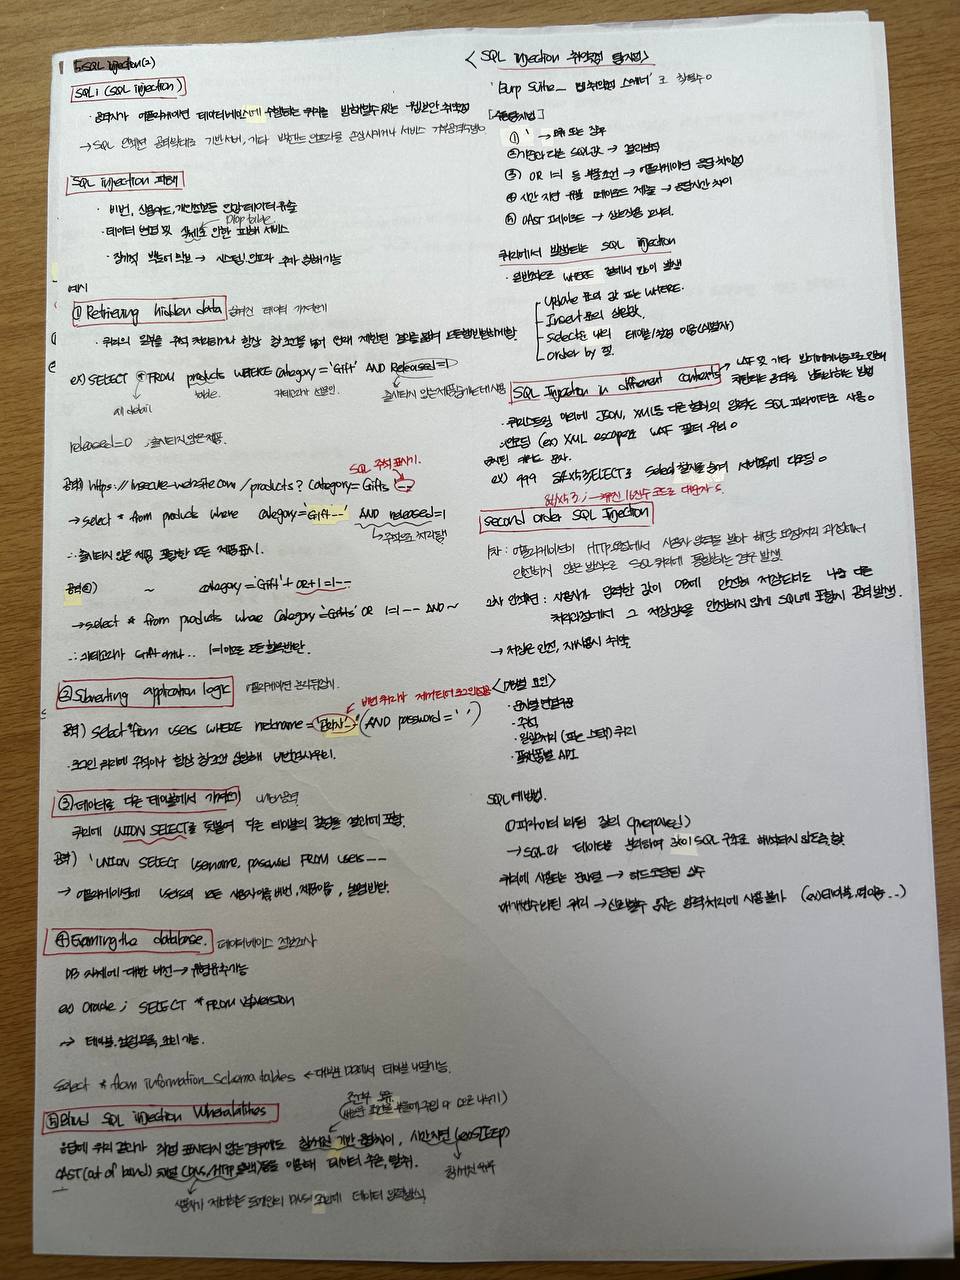 SQL injection(2)
SQLi (SQL injection)
· 공격자가 어플리케이션 데이터베이스에 수행하는 쿼리를 방해할수 있는 웹보안 취약점
→ SQL 인젝션 공격확대로 기반서버, 기타 백엔드 인프라를 손상시키거나 서비스 거부공격수행 o
SQL injection 피해
· 비번, 신용카드, 개인정보등 민감 데이터 유출
Drop table
· 데이터 변경 및 삭제로 인한 피해 서비스
· 장기적 백도어 확보 → 시스템, 인프라 추가 침해가능
예시
① Retrieving hidden data 숨겨진 데이터 가져오기
· 쿼리의 일부를 주석 처리하거나 항상 참 조건을 넣어 원래 제한된 결과를 넘어 모든행 반환하게함.
ex) SELECT * FROM products WHERE category = 'Gift' AND Released=1
all detail
table.
카테고리가 선물인.
출시되지 않은제품 숨기는데 사용
released=0 ; 출시되지 않은 제품.
SQL 주석 표시기.
공격) https://insecure-website.com/products? Category=Gifts '--
→ select * from products where category='Gift--' AND released=1
→ 주석으로 처리됨!
∴ 출시되지 않은 제품 포함한 모든 제품표시.
공격②) ~ category='Gift'+ OR+1=1--
→ select * from products where category='Gifts' OR 1=1 -- AND ~
∴ 카테고리가 Gift 이거나.. 1=1 이므로 모든 항목 반환.
② Subverting application logic 어플리케이션 논리 뒤집기.
비번 쿼리가 제거되어 로그인 허용
공격) select * from users WHERE nickname = '관리자'--' (AND password = ' ')
· 로그인 쿼리에 주석이나 항상 참 조건 삽입해 비번검사 우회.
③ 데이터를 다른 테이블에서 가져오기 union 공격
쿼리에 UNION SELECT를 덧붙여 다른 테이블의 결과를 결과에 포함.
공격) 'UNION SELECT username, password FROM users--
→ 어플리케이션에 users의 모든 사용자이름, 비번, 제품이름, 설명 반환.
④ Examing the database. 데이터베이스 정보조사
DB 자체에 대한 버전 → 유형유추가능
ex) Oracle ; SELECT * FROM v$version
→ 테이블, 컬럼 목록 조회 가능.
Select * from information_schema.tables ← 대부분 DB에서 테이블 나열가능.
조건부 오류
⑤ Blind SQL injection Vulnerabilities
응답에 쿼리 결과가 직접 표시되지 않는 경우에도 참/거짓 기반 응답차이, 시간지연 (ex.SLEEP)
OAST (out of band) 채널 (DNS/HTTP 콜백)등을 이용해 데이터 추론, 탈취.
참/거짓 유추
사용자가 제어하는 도메인의 DNS 조회에 데이터 입력방식.
< SQL injection 취약점 탐지법 >
'Burp Suite_ 웹 취약점 스캐너' 로 찾을수 o
[수동탐지법]
① ' → 오류 또는 징후
② 기존과 다른 SQL값 → 결과비교
③ OR 1=1 등 부울조건 → 어플리케이션 응답 차이점
④ 시간 지연 유발 페이로드 제출 → 응답시간 차이
⑤ OAST 페이로드 → 상호작용 모니터.
쿼리에서 발생하는 SQL injection
· 일반적으로 WHERE 절에서 많이 발생
- Update 문의 값 또는 WHERE.
- Insert문의 삽입값.
- Select문 내의 테이블/컬럼 이름(식별자)
- Order by 절.
SQL Injection in different contexts → WAF 및 기타 방어메커니즘으로 인해
차단되는 공격을 난독화하는 방법
· 쿼리스트링 이외에 JSON, XML등 다른 형식의 입력도 SQL 파라미터로 사용 o
· 인코딩 (ex) XML escape로 WAF 필터 우회 o
ex) 999 &#x53;ELECT로 Select 철자를 숨겨 서버측에 디코딩 o
&#x53; ; → 16진수 코드로 대문자 S.
Second order SQL Injection
1차 : 어플리케이션이 HTTP요청에서 사용자 입력을 받아 해당 요청처리 과정에서
안전하지 않은 방식으로 SQL 쿼리에 통합하는 경우 발생
2차 인젝션 : 사용자가 입력한 값이 DB에 안전히 저장되더라도 나중 다른
처리과정에서 그 저장값을 안전하지 않게 SQL에 포함시 공격 발생.
→ 저장은 안전, 재사용시 취약
<DB별 요인>
· 문자열 연결구문
· 주석
· 일괄처리 (또는 스택) 쿼리
· 플랫폼별 API
SQL 예방법.
① 파라미터화된 질의 (prepared)
→ SQL과 데이터를 분리하여 값이 SQL 구조로 해석되지 않도록 함.
쿼리에 사용되는 문자열 → 하드코딩된 상수
매개변수화된 쿼리 → 신뢰할수 없는 입력처리에 사용불가 (ex)테이블, 열이름..)